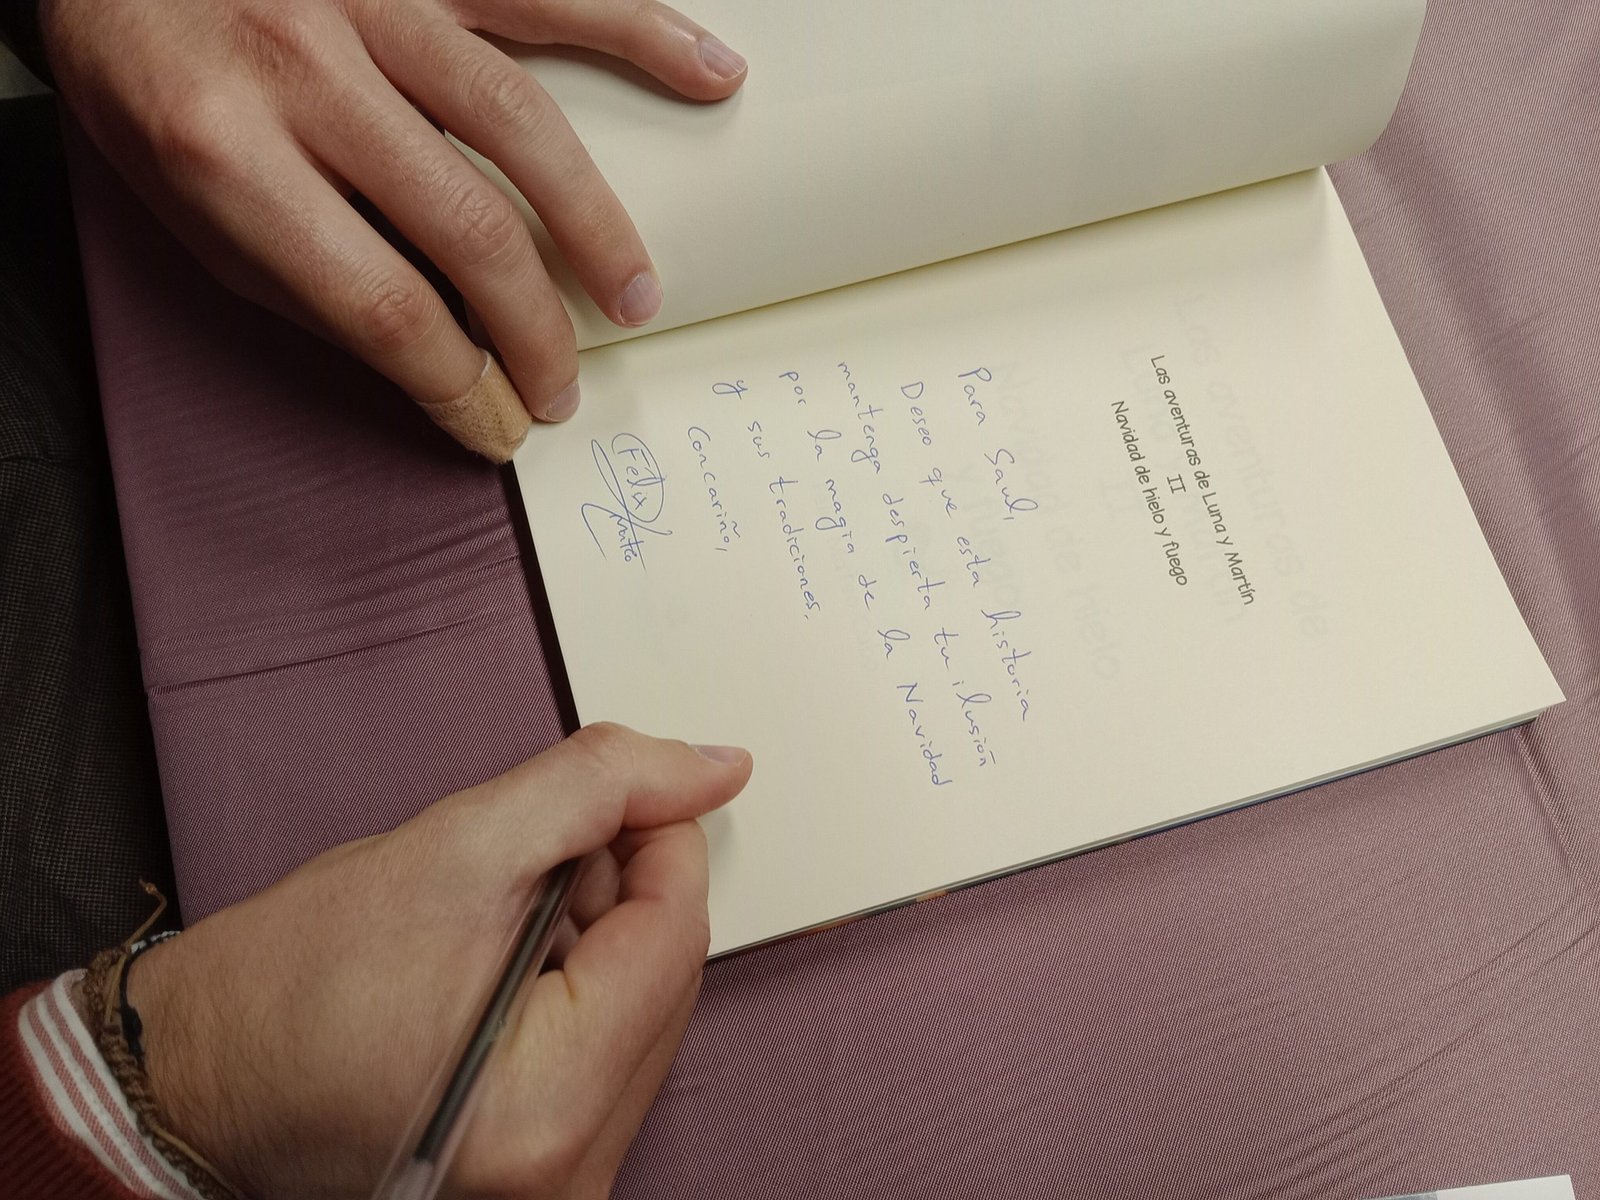 Las aventuras de Luna y Martín
II
Navidad de hielo y fuego
Para Saul,
Deseo que esta historia
mantenga despierta tu ilusión
por la magia de la Navidad
y sus tradiciones.
Con cariño,
Félix